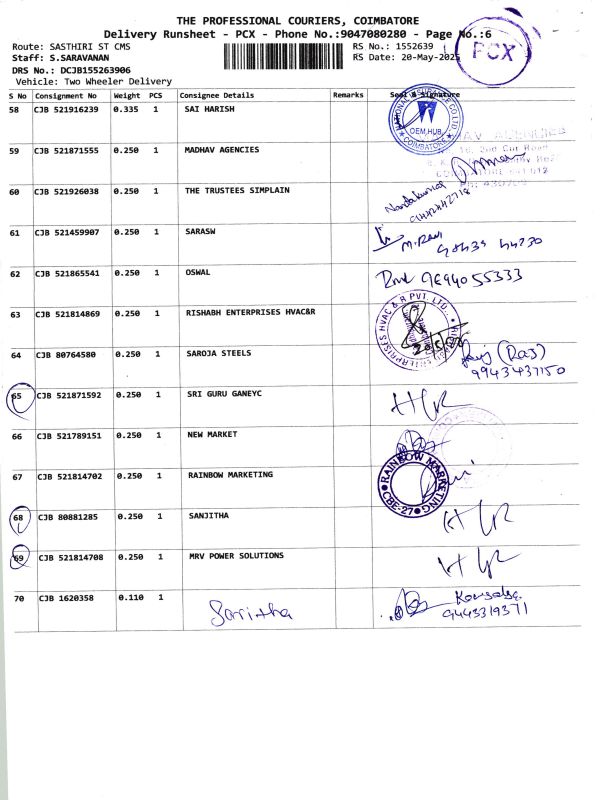 THE PROFESSIONAL COURIERS, COIMBATORE
Delivery Runsheet - PCX - Phone No.:9047080280 - Page No.:6
Route: SASTHIRI ST CMS
RS No.: 1552639
Staff: S.SARAVANAN
RS Date: 20-May-2025
DRS No.: DCJB155263906
Vehicle: Two Wheeler Delivery
PCX
S No Consignment No Weight PCS Consignee Details Remarks Seal & Signature
58 CJB 521916239 0.335 1 SAI HARISH
NATIONAL INSURANCE CO.LTD. OEM HUB COIMBATORE
59 CJB 521871555 0.250 1 MADHAV AGENCIES
60 CJB 521926038 0.250 1 THE TRUSTEES SIMPLAIN
9442442718
61 CJB 521459907 0.250 1 SARASW
M.Ravi
62 CJB 521865541 0.250 1 OSWAL
9E94055333
63 CJB 521814869 0.250 1 RISHABH ENTERPRISES HVAC&R
RISHABH ENTERPRISES HVAC & R PVT. LTD.
64 CJB 80764580 0.250 1 SAROJA STEELS
(Raj)
9943437150
65 CJB 521871592 0.250 1 SRI GURU GANEYC
66 CJB 521789151 0.250 1 NEW MARKET
67 CJB 521814702 0.250 1 RAINBOW MARKETING
RAINBOW MARKETING CBE-27
68 CJB 80881285 0.250 1 SANJITHA
69 CJB 521814708 0.250 1 MRV POWER SOLUTIONS
70 CJB 1620358 0.110 1 Saritha
9443319371